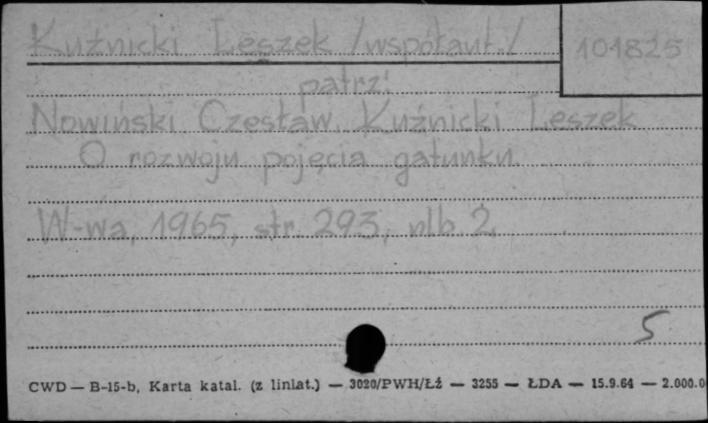 Kuźnicki Leszek /współaut./ 101825
patrz:
Nowiński Czesław, Kuźnicki Leszek
O rozwoju pojęcia gatunku
W-wa, 1965, str. 293, nlb. 2.
5
CWD — B-15-b, Karta katal. (z liniat.) — 3020/PWH/Łź — 3255 — ŁDA — 15.9.64 — 2.000.0